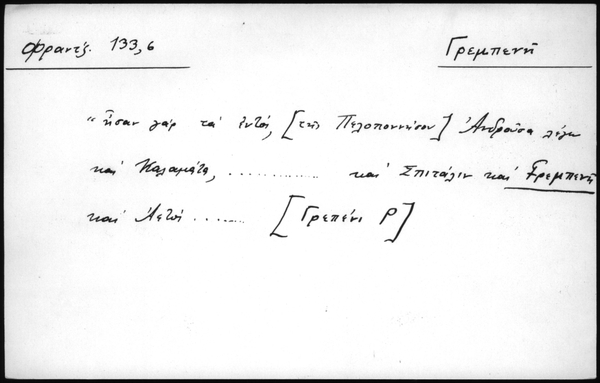 Φραντζ. 133,6
Γρεμπενῆ
"ἦσαν γάρ τά ἐντός, [τῆς Πελοποννήσου] Ἀνδροῦσα λέγω
καί Καλαμάτα, .............. καί Σπιτάλιν καί Γρεμπενῆ
καί Ἀετός ........ [Γρεπένι P]